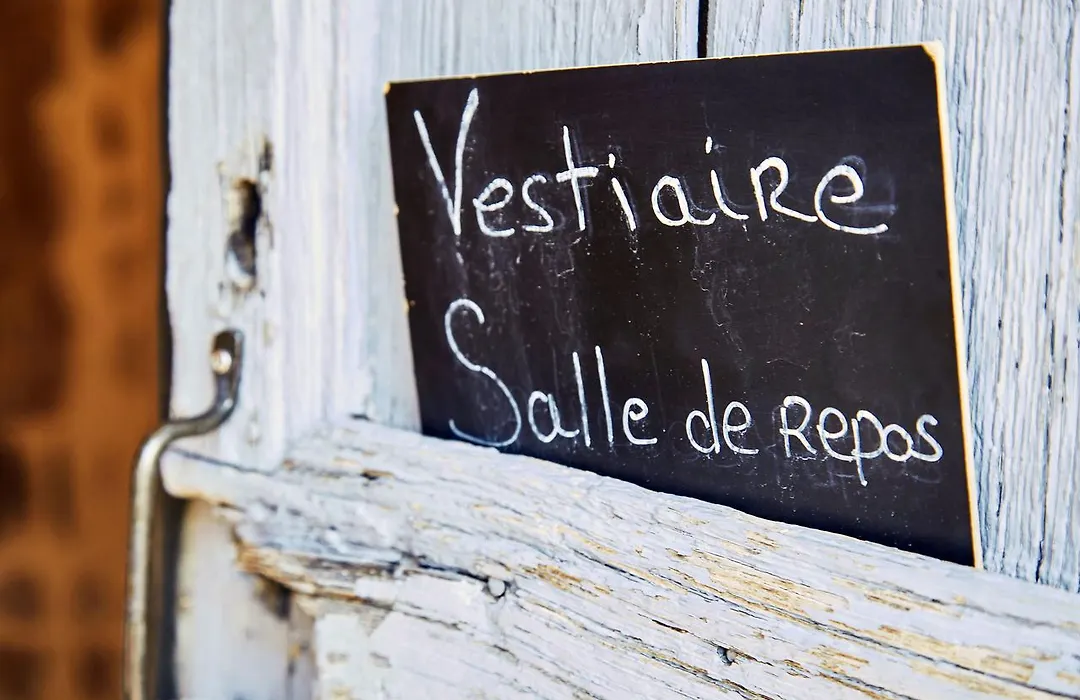 Vestiaire
Salle de Repos